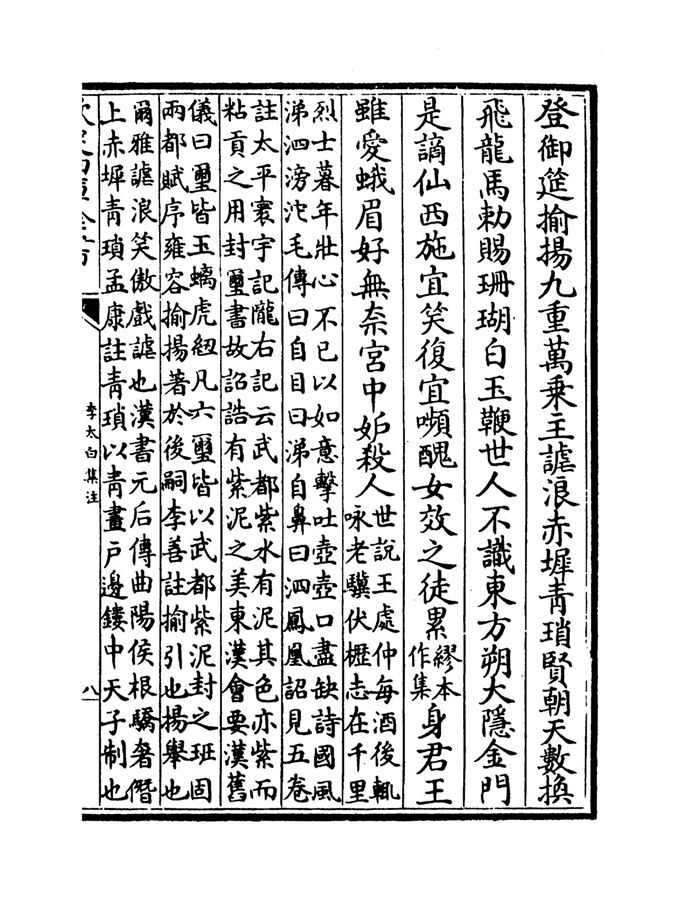 登御筵揄揚九重萬乗主謔浪赤墀青瑣賢朝天數換
飛龍馬勅賜珊瑚白玉鞭世人不識東方朔大隱金門
是謫仙西施宜笑復宜嚬醜女效之徒累
繆本
作集
身君王
雖愛蛾眉好無奈宮中妒殺人
世說王處仲每酒後輒
咏老驥伏櫪志在千里
烈士暮年壯心不已以如意擊吐壺壺口盡缺詩國風
涕泗滂沱毛傳曰自目曰涕自鼻曰泗鳳凰詔見五卷
註太平寰宇記隴右記云武都紫水有泥其色亦紫而
粘貢之用封璽書故詔誥有紫泥之美東漢會要漢舊
儀曰璽皆玉螭虎紐凡六璽皆以武都紫泥封之班固
兩都賦序雍容揄揚著於後嗣李善註揄引也揚舉也
爾雅謔浪笑傲戲謔也漢書元后傳曲陽侯根驕奢僭
上赤墀青瑣孟康註青瑣以青畫戶邊鏤中天子制也
李太白集注
八